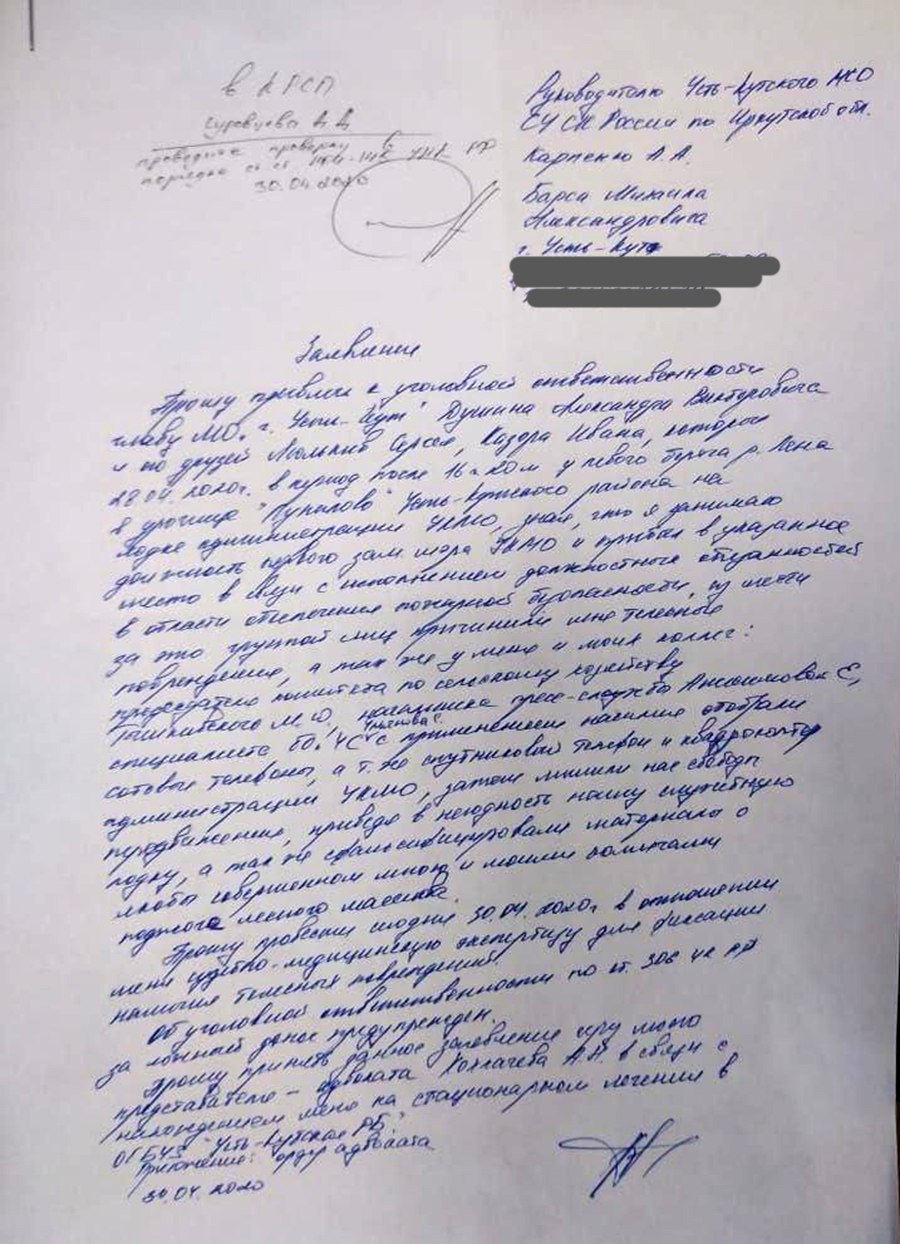 в КРСП
проведите проверку в
порядке ст. ст. 144-145 УПК РФ
30.04.2020
Руководителю Усть-Кутского МСО
СУ СК России по Иркутской обл.
Карпенко А.А.
Барса Михаила
Александровича
г. Усть-Кут
Заявление
Прошу привлечь к уголовной ответственности
главу МО "г. Усть-Кут" Душина Александра Викторовича
и его друзей Сергея, Ивана, которые
28.04.2020г. в период после 16ч 20м у левого берега р. Лена
в урочище Усть-Кутского района на
лодке администрации УКМО, зная, что я занимаю
должность первого зам мэра УКМО и прибыл в указанное
место в связи с исполнением должностных обязанностей
в области обеспечения пожарной безопасности, из мести
за это группой лиц причинили мне телесные
повреждения, а так же у меня и моих коллег:
председателя комитета по сельскому хозяйству
М.Ю., начальника пресс-службы Анисимовой Е,
специалиста ГО и ЧС с применением насилия отобрали
сотовые телефоны, а т.же спутниковый телефон и квадрокоптер
администрации УКМО, затем лишили нас свободы
передвижения, приведя в негодность нашу служебную
лодку, а так же сфальсифицировали материалы о
якобы совершенном мною и моими коллегами
поджоге лесного массива.
Прошу провести сегодня 30.04.2020г в отношении
меня судебно-медицинскую экспертизу для фиксации
наличия телесных повреждений.
Об уголовной ответственности по ст. 306 УК РФ
за ложный донос предупрежден.
Прошу принять данное заявление через моего
представителя - адвоката А.Н в связи с
нахождением меня на стационарном лечении в
ОГБУЗ "Усть-Кутская РБ".
Приложение: ордер адвоката
30.04.2020